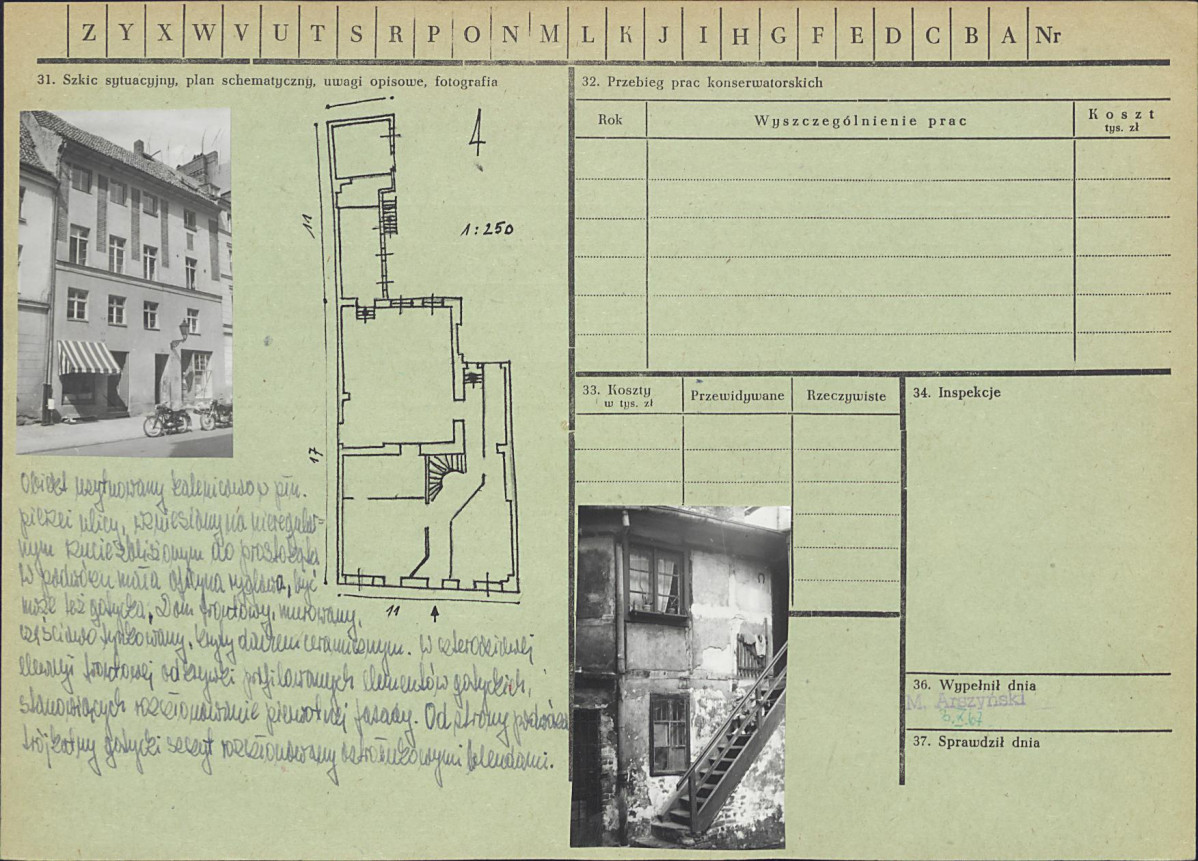 Z Y X W V U T S R P O N M L K J I H G F E D C B A Nr
31. Szkic sytuacyjny, plan schematyczny, uwagi opisowe, fotografia
4
1:250
11
17
11
Obiekt usytuowany kalenicowo w płn.
pierzei ulicy, wzniesiony na nieregular-
nym rzucie zbliżonym do prostokąta
W podwórzu mała oficyna ryglowa, być
może też gotycka. Dom frontowy, murowany,
częściowo tynkowany, kryty dachem ceramicznym. W czteroosiowej
elewacji frontowej odkrywki profilowanych elementów gotyckich,
stanowiących rozczłonkowanie pierwotnej fasady. Od strony podwórza
trójkątny gotycki szczyt rozczłonkowany ostrołukowymi blendami.
32. Przebieg prac konserwatorskich
Rok
Wyszczególnienie prac
Koszt
tys. zł
33. Koszty
w tys. zł
Przewidywane
Rzeczywiste
34. Inspekcje
36. Wypełnił dnia
M. Arszyński
37. Sprawdził dnia